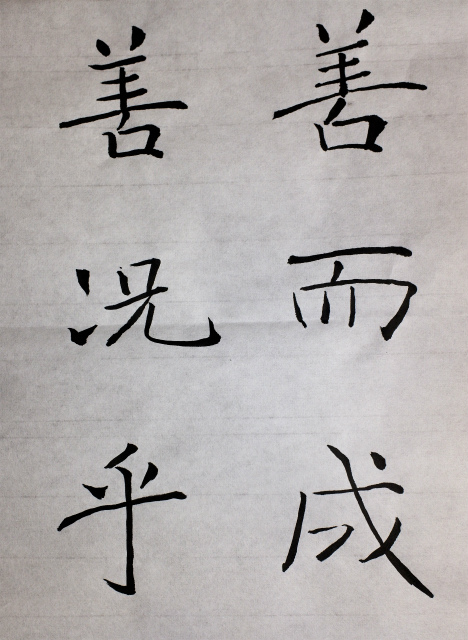 善而成
善况乎